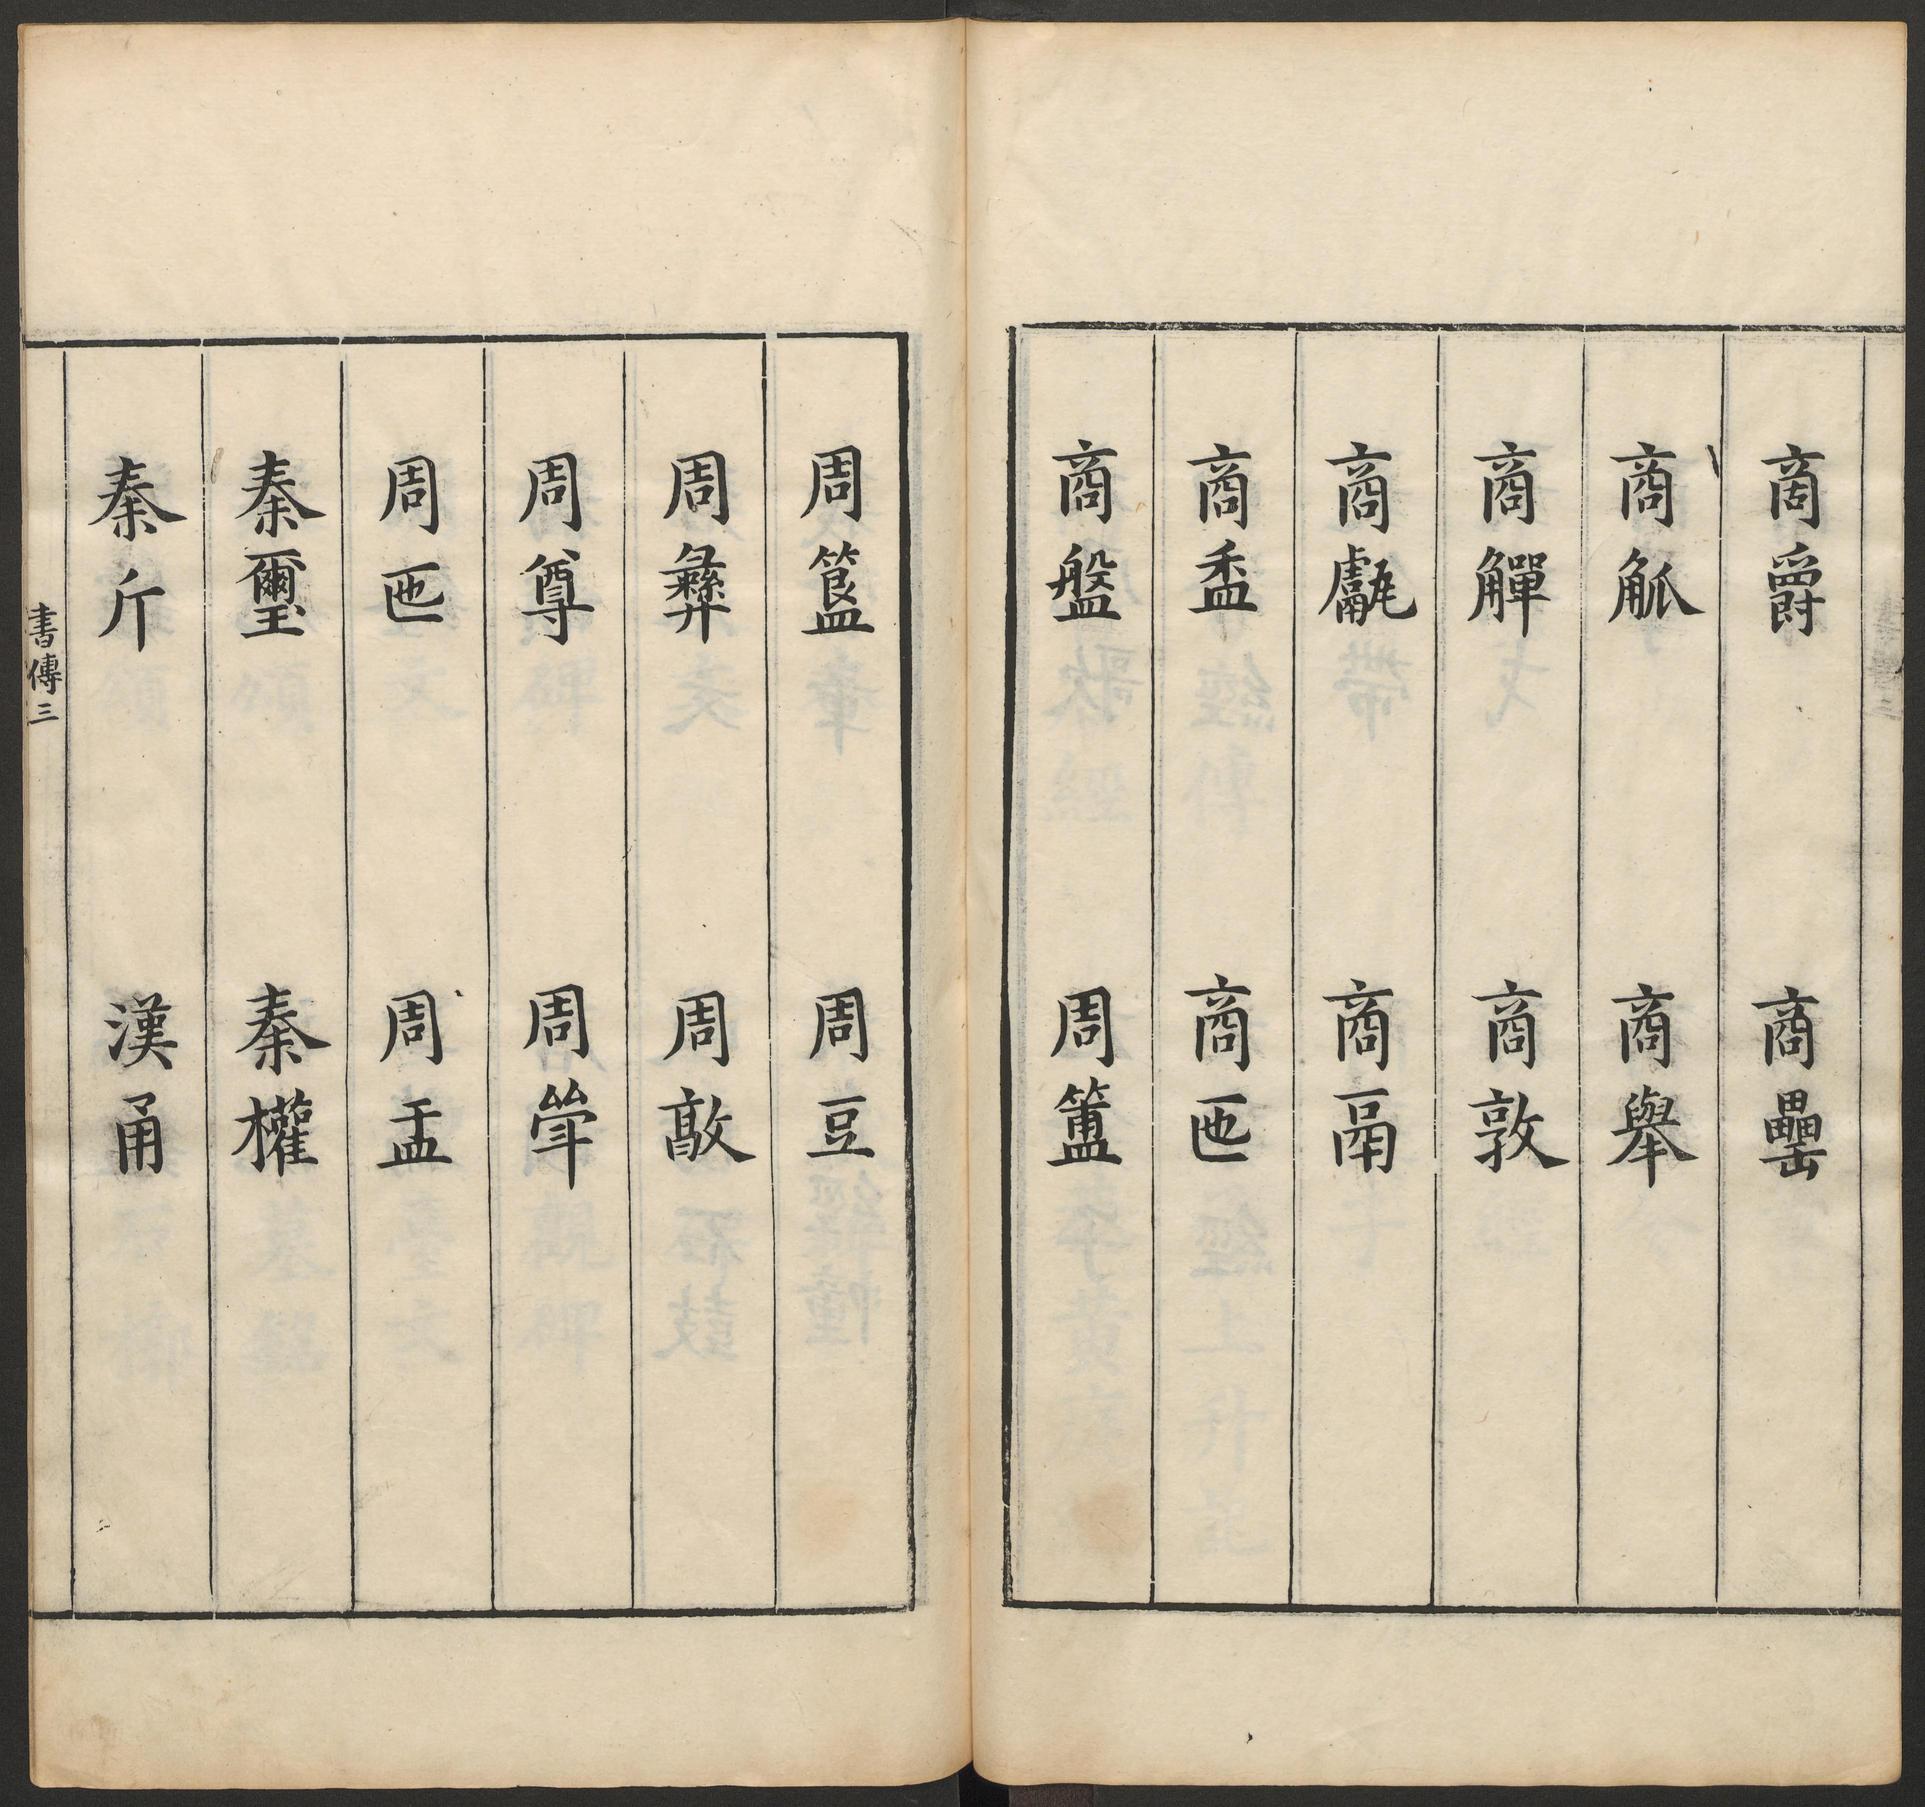 商爵　商罍
商觚　商舉
商觶　商敦
商甗　商鬲
商盉　商匜
商盤　周簠
周簋　周豆
周彝　周敦
周尊　周斝
周匜　周盂
秦璽　秦權
秦斤　漢甬
書傳三